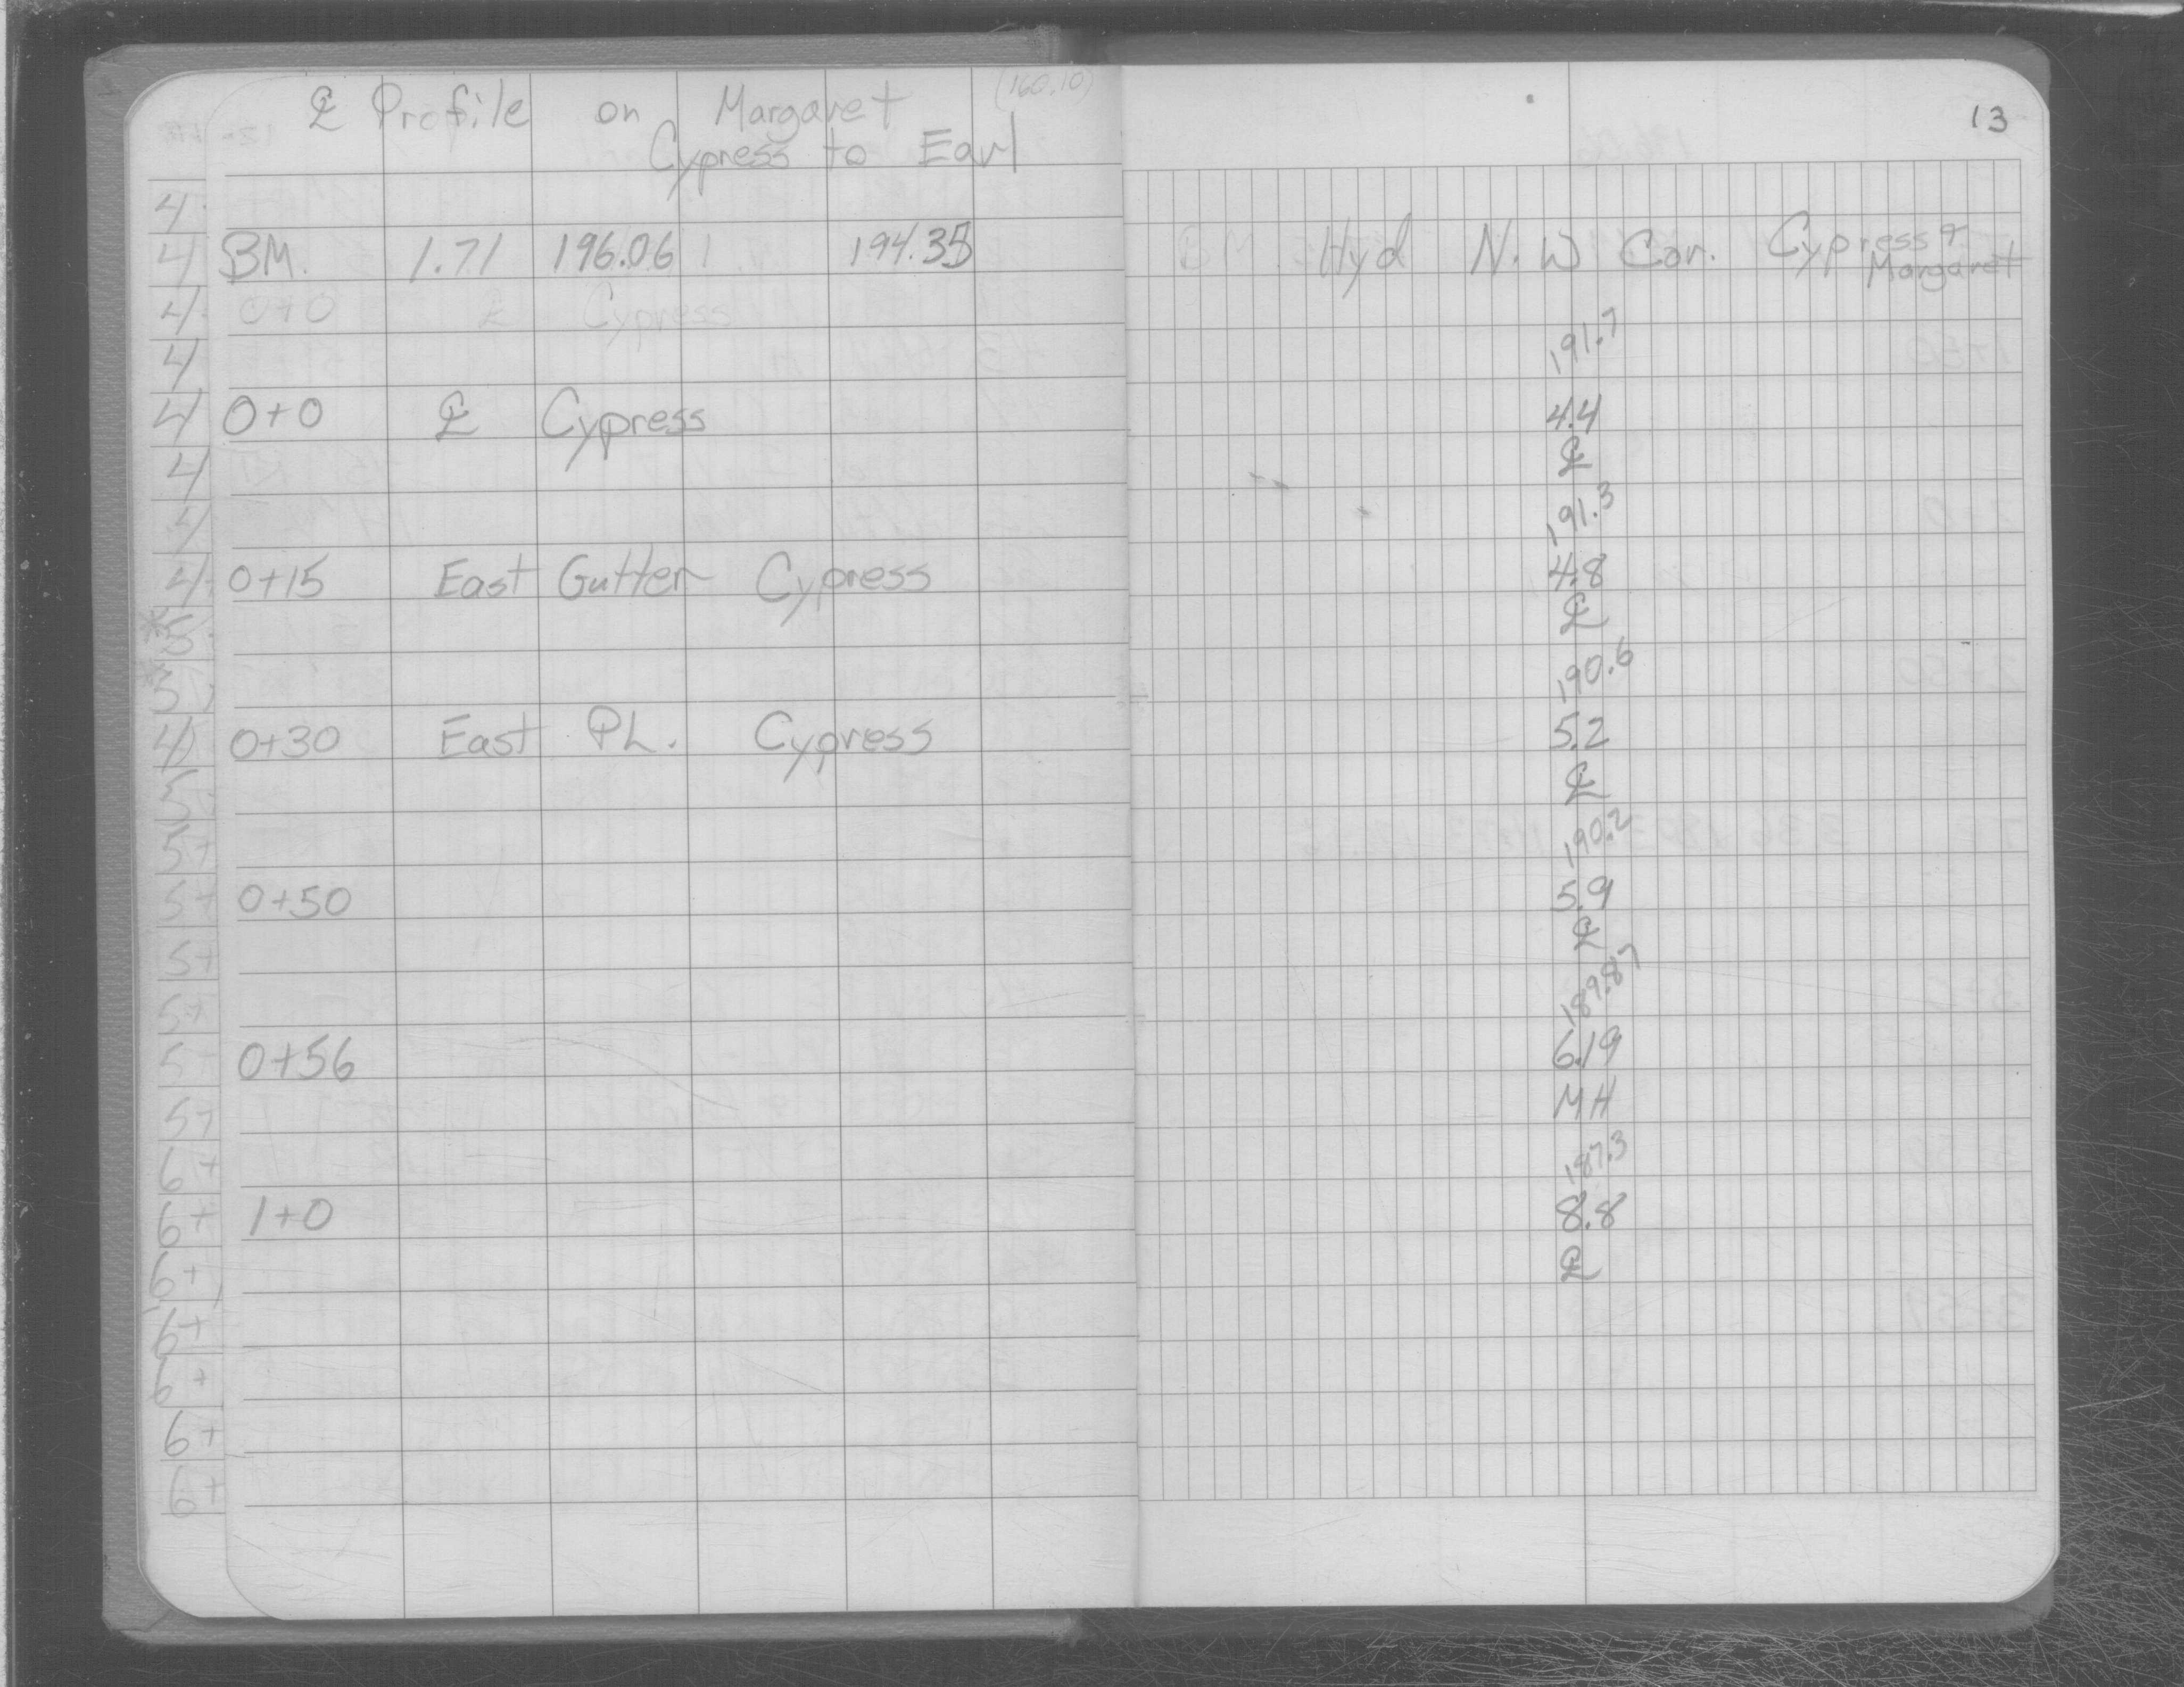 ℄ Profile on Margaret (160.10)
Cypress to Earl
13
BM. 1.71 196.06 194.35 BM Hyd N.W Cor. Cypress & Margaret
0+0 ℄ Cypress
191.7
0+0 ℄ Cypress 4.4
℄
191.3
0+15 East Gutter Cypress 4.8
℄
190.6
0+30 East PL. Cypress 5.2
℄
190.2
0+50 5.9
℄
189.87
0+56 6.19
MH
187.3
1+0 8.8
℄
4
4
4
4
4
4
4
4
5
5
4
5
5+
5+
5+
5+
5
5+
6+
6+
6+
6+
6+
6+
6+